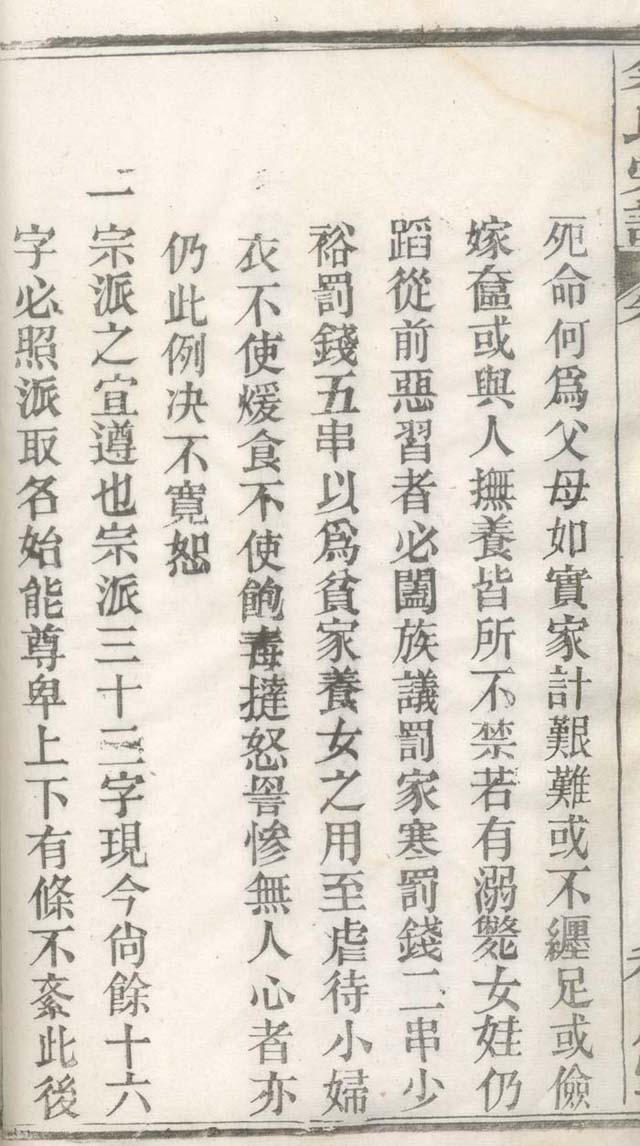 死命何爲父母如實家計艱難或不纏足或儉
嫁奩或與人撫養皆所不禁若有溺斃女娃仍
蹈從前惡習者必闔族議罰家寒罰錢二串少
裕罰錢五串以爲貧家養女之用至虐待小婦
衣不使煖食不使飽毒撻怒詈慘無人心者亦
仍此例决不寬恕
一宗派之宜遵也宗派三十二字現今尙餘十六
字必照派取名始能尊卑上下有條不紊此後